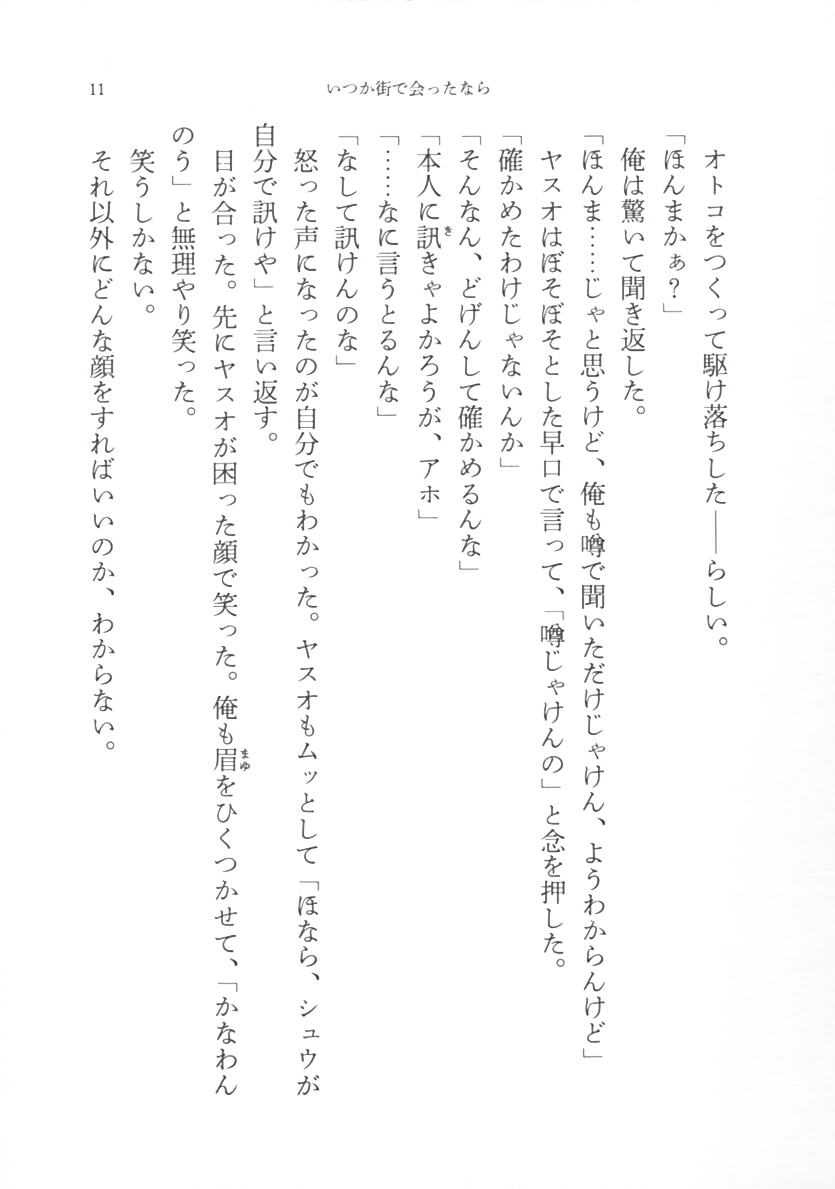 11
いつか街で会ったなら
オトコをつくって駆け落ちした――らしい。
「ほんまかぁ？」
俺は驚いて聞き返した。
「ほんま……じゃと思うけど、俺も噂で聞いただけじゃけん、ようわからんけど」
ヤスオはぼそぼそとした早口で言って、「噂じゃけんの」と念を押した。
「確かめたわけじゃないんか」
「そんなん、どげんして確かめるんな」
「本人に訊きゃよかろうが、アホ」
「……なに言うとるんな」
「なして訊けんのな」
怒った声になったのが自分でもわかった。ヤスオもムッとして「ほなら、シュウが
自分で訊けや」と言い返す。
目が合った。先にヤスオが困った顔で笑った。俺も眉をひくつかせて、「かなわん
のう」と無理やり笑った。
笑うしかない。
それ以外にどんな顔をすればいいのか、わからない。